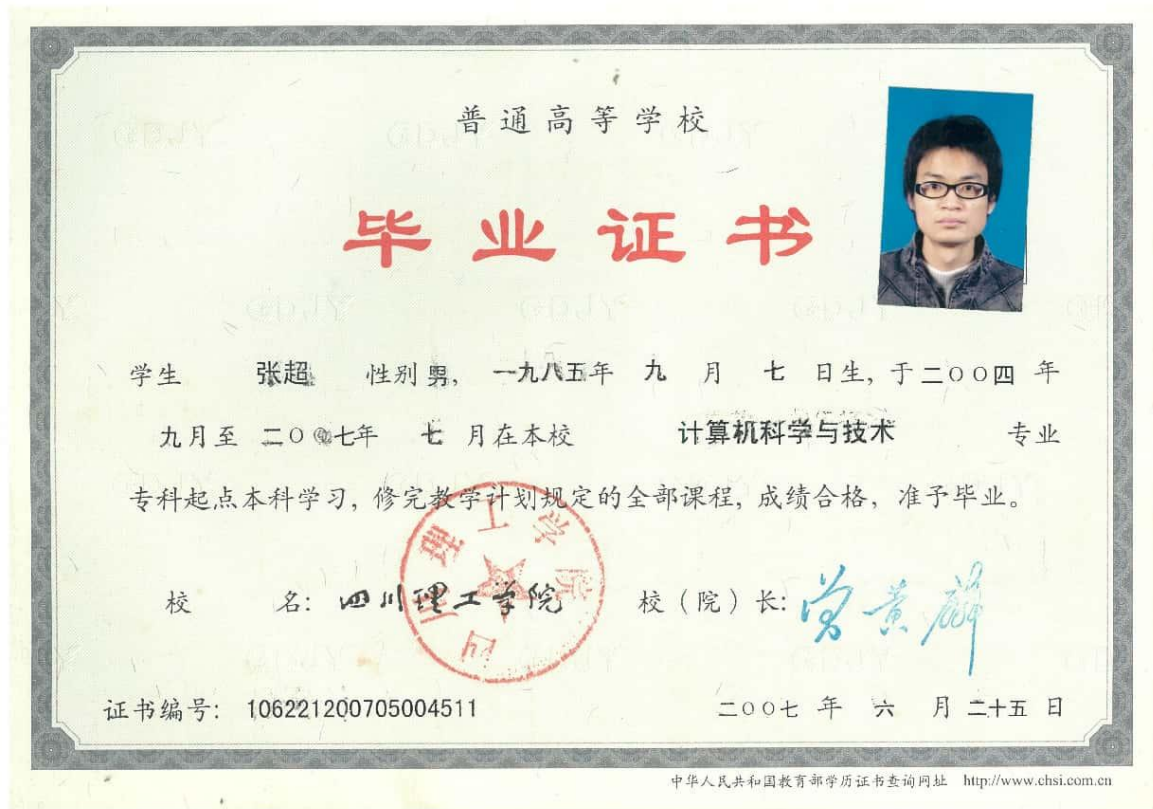 普通高等学校
毕业证书
学生 张超 性别 男, 一九八五年 九 月 七 日生, 于二〇〇四 年
九月至 二〇〇七年 七 月在本校 计算机科学与技术 专业
专科起点本科学习, 修完教学计划规定的全部课程, 成绩合格, 准予毕业。
四川理工学院
校 名: 四川理工学院 校(院)长: 曾黄麟
证书编号: 106221200705004511 二〇〇七 年 六 月 二十五 日
中华人民共和国教育部学历证书查询网址 http://www.chsi.com.cn